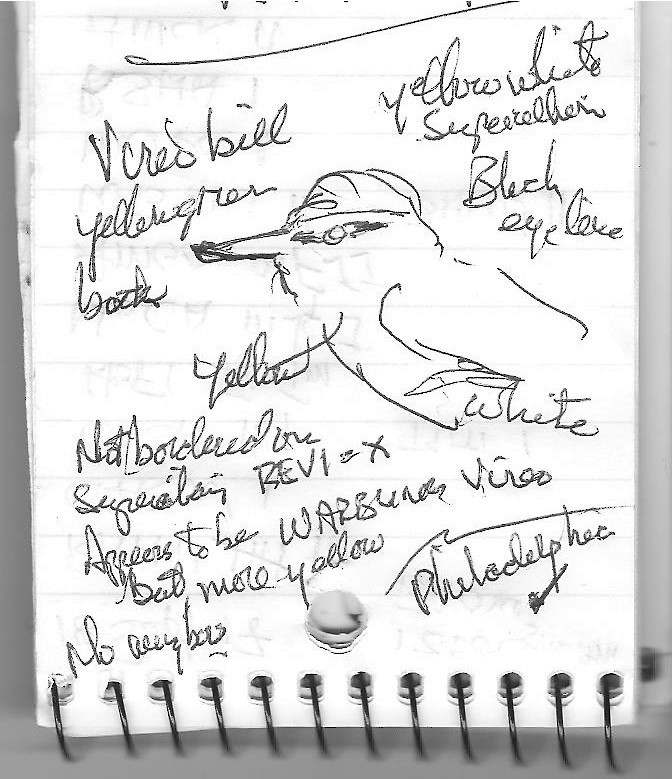 Yellow white
Supercilium
Vireo bill
Black
eye line
yellowgreen
back
Yellow
White
Not bordered on
Supercilium REVI = X
Appears to be WARBLING Vireo
But more yellow
Philadelphia
No wingbars